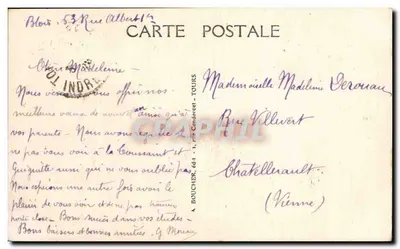 Blois. 53 Rue Albert 1er
CARTE POSTALE
Chère Madeleine
Nous venons vous offrir nos
meilleurs vœux de nouvel an ainsi qu'à
vos parents. Nous avons
ne pas vous voir à la Toussaint et
Guiguitte aussi qui ne vous oublie pas
Nous espérons une autre fois avoir le
plaisir de vous voir et ne pas trouver
porte close. Bons succès dans vos études.
Bons baisers et bonnes amitiés. G. Moreau
INDRE
A. BOUCHER, édit. - TOURS
Mademoiselle Madeleine
Rue Villevert
Châtellerault
(Vienne)